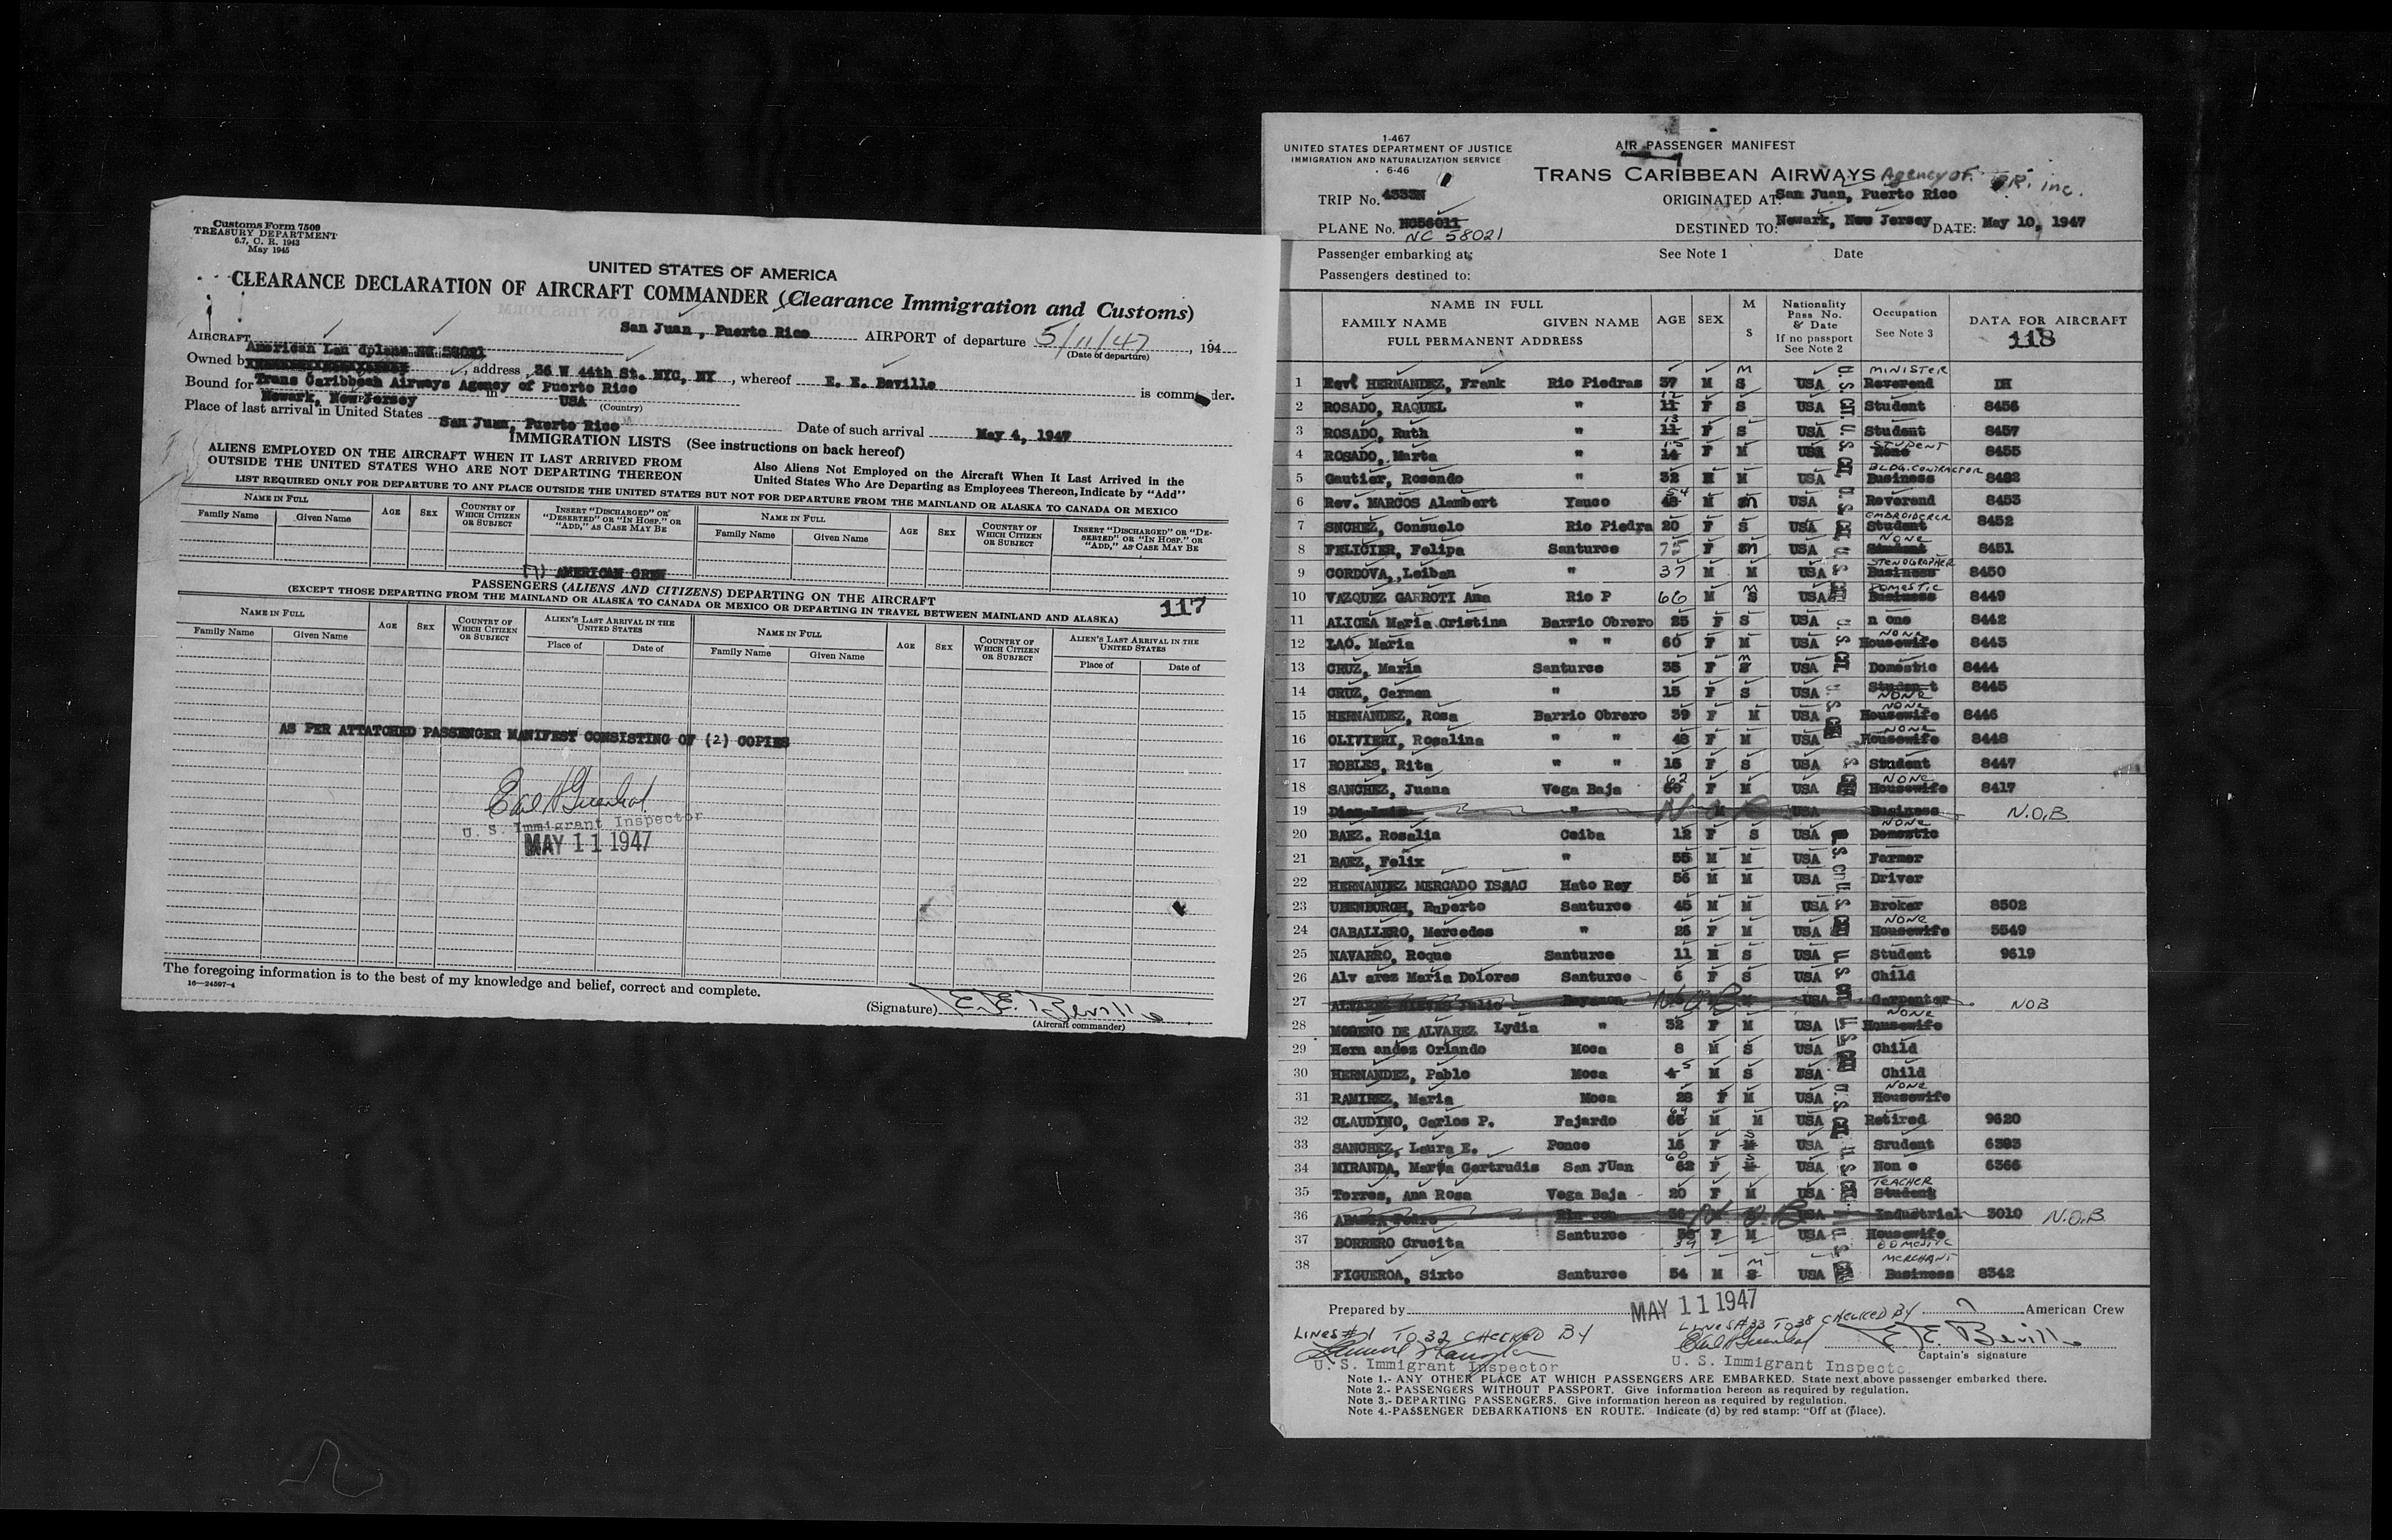 Customs Form 7509
TREASURY DEPARTMENT
6.7, C. R. 1943
May 1945
UNITED STATES OF AMERICA
CLEARANCE DECLARATION OF AIRCRAFT COMMANDER (Clearance Immigration and Customs)
San Juan, Puerto Rico AIRPORT of departure 5/11/47, 194
(Date of departure)
AIRCRAFT American Lan dplane NC 58021
Owned by , address 36 W 44th St. NYC, NY, whereof E. E. Beville is commander.
Trans Caribbean Airways Agency of Puerto Rico
Bound for Newark, New Jersey in USA
(Country)
Place of last arrival in United States San Juan, Puerto Rico Date of such arrival May 4, 1947
IMMIGRATION LISTS (See instructions on back hereof)
ALIENS EMPLOYED ON THE AIRCRAFT WHEN IT LAST ARRIVED FROM
OUTSIDE THE UNITED STATES WHO ARE NOT DEPARTING THEREON
Also Aliens Not Employed on the Aircraft When It Last Arrived in the
United States Who Are Departing as Employees Thereon, Indicate by "Add"
LIST REQUIRED ONLY FOR DEPARTURE TO ANY PLACE OUTSIDE THE UNITED STATES BUT NOT FOR DEPARTURE FROM THE MAINLAND OR ALASKA TO CANADA OR MEXICO
NAME IN FULL AGE SEX COUNTRY OF WHICH CITIZEN OR SUBJECT INSERT "DISCHARGED" OR "DESERTED" OR "IN HOSP." OR "ADD," AS CASE MAY BE NAME IN FULL AGE SEX COUNTRY OF WHICH CITIZEN OR SUBJECT INSERT "DISCHARGED" OR "DESERTED" OR "IN HOSP." OR "ADD," AS CASE MAY BE
Family Name Given Name Family Name Given Name
(7) AMERICAN CREW
PASSENGERS (ALIENS AND CITIZENS) DEPARTING ON THE AIRCRAFT
(EXCEPT THOSE DEPARTING FROM THE MAINLAND OR ALASKA TO CANADA OR MEXICO OR DEPARTING IN TRAVEL BETWEEN MAINLAND AND ALASKA)
117
NAME IN FULL AGE SEX COUNTRY OF WHICH CITIZEN OR SUBJECT ALIEN'S LAST ARRIVAL IN THE UNITED STATES NAME IN FULL AGE SEX COUNTRY OF WHICH CITIZEN OR SUBJECT ALIEN'S LAST ARRIVAL IN THE UNITED STATES
Family Name Given Name Place of Date of Family Name Given Name Place of Date of
AS PER ATTATCHED PASSENGER MANIFEST CONSISTING OF (2) COPIES
U. S. Immigrant Inspector
MAY 11 1947
The foregoing information is to the best of my knowledge and belief, correct and complete.
16—24597-4
(Signature) E. E. Beville
(Aircraft commander)
1-467
UNITED STATES DEPARTMENT OF JUSTICE
IMMIGRATION AND NATURALIZATION SERVICE
6-46
AIR PASSENGER MANIFEST
TRANS CARIBBEAN AIRWAYS Agency of P.R. inc.
TRIP No. 4333N ORIGINATED AT: San Juan, Puerto Rico
PLANE No. NC56011 NC 58021 DESTINED TO: Newark, New Jersey DATE: May 10, 1947
Passenger embarking at: See Note 1 Date
Passengers destined to:
NAME IN FULL
FAMILY NAME GIVEN NAME
FULL PERMANENT ADDRESS
AGE SEX M S Nationality Pass No. & Date If no passport See Note 2 Occupation See Note 3 DATA FOR AIRCRAFT
118
1 Revt HERNANDEZ, Frank Rio Piedras 37 M S M USA Reverend MINISTER DH
2 ROSADO, RAQUEL " 11 12 F S USA Student 8456
3 ROSADO, Ruth " 11 13 F S USA Student 8457
4 ROSADO, Marta " 14 15 F M USA None STUDENT 8455
5 Gautier, Rosendo " 32 M M USA Business BLDG. CONTRACTOR 8482
6 Rev. MARCOS Alambert Yauco 48 54 M M USA Reverend 8453
7 SNCHEZ, Consuelo Rio Piedra 20 F S USA Student EMBROIDERER 8452
8 FELICIER, Felipa Santurce 75 F M USA Student NONE 8451
9 CORDOVA, Leiban " 37 M M USA Business STENOGRAPHER 8450
10 VAZQUEZ GARROTI Ana Rio P 66 M S M USA Business DOMESTIC 8449
11 ALICEA Maria Cristina Barrio Obrero 25 F S USA n one 8442
12 LAO. Maria " " 60 F M USA Housewife NONE 8443
13 CRUZ, Maria Santurce 35 F S M USA Domestic 8444
14 CRUZ, Carmen " 15 F S USA Student NONE 8445
15 HERNANDEZ, Rosa Barrio Obrero 39 F M USA Housewife NONE 8446
16 OLIVIERI, Rosalina " " 48 F M USA Housewife NONE 8448
17 ROBLES, Rita " " 15 F S USA Student 8447
18 SANCHEZ, Juana Vega Baja 60 62 F M USA Housewife NONE 8417
19 " M USA Business N.O.B.
20 BAEZ. Rosalia Ceiba 12 F S USA Domestic NONE
21 BAEZ, Felix " 55 M M USA Farmer
22 HERNANDEZ MERCADO ISAAC Hato Rey 56 M M USA Driver
23 UBENBURGH, Ruperto Santurce 45 M M USA Broker 8502
24 CABALLERO, Mercedes " 26 F M USA Housewife NONE 5549
25 NAVARRO, Roque Santurce 11 M S USA Student 9619
26 Alv arez Maria Dolores Santurce 6 F S USA Child
27 Julio Bayamon USA Carpenter NOB
28 MORENO DE ALVAREZ Lydia " 32 F M USA Housewife NONE
29 Hern andez Orlando Moca 8 M S USA Child
30 HERNANDEZ, Pablo Moca 4 5 M S USA Child
31 RAMIREZ, Maria Moca 28 F M USA Housewife NONE
32 CLAUDINO, Carlos P. Fajardo M M USA Retired 9620
33 SANCHEZ, Laura E. Ponce 16 F M S USA Srudent 6393
34 MIRANDA, Maria Gertrudis San JUan 62 60 F M S USA Non e 6366
35 Torres, Ana Rosa Vega Baja 20 F M USA Student TEACHER
36 Pedro Rin con USA Industrial 3010 N.O.B.
37 BORRERO Crucita Santurce 39 F M USA Housewife DOMESTIC
38 FIGUEROA, Sixto Santurce 54 M S M USA Business MERCHANT 8342
Prepared by MAY 11 1947 7 American Crew
LINES #1 TO 32 CHECKED BY LINES #33 TO 38 CHECKED BY
E. E. Beville
U. S. Immigrant Inspector U. S. Immigrant Inspecto Captain's signature
Note 1.- ANY OTHER PLACE AT WHICH PASSENGERS ARE EMBARKED. State next above passenger embarked there.
Note 2.- PASSENGERS WITHOUT PASSPORT. Give information hereon as required by regulation.
Note 3.- DEPARTING PASSENGERS. Give information hereon as required by regulation.
Note 4.-PASSENGER DEBARKATIONS EN ROUTE. Indicate (d) by red stamp: "Off at (place).